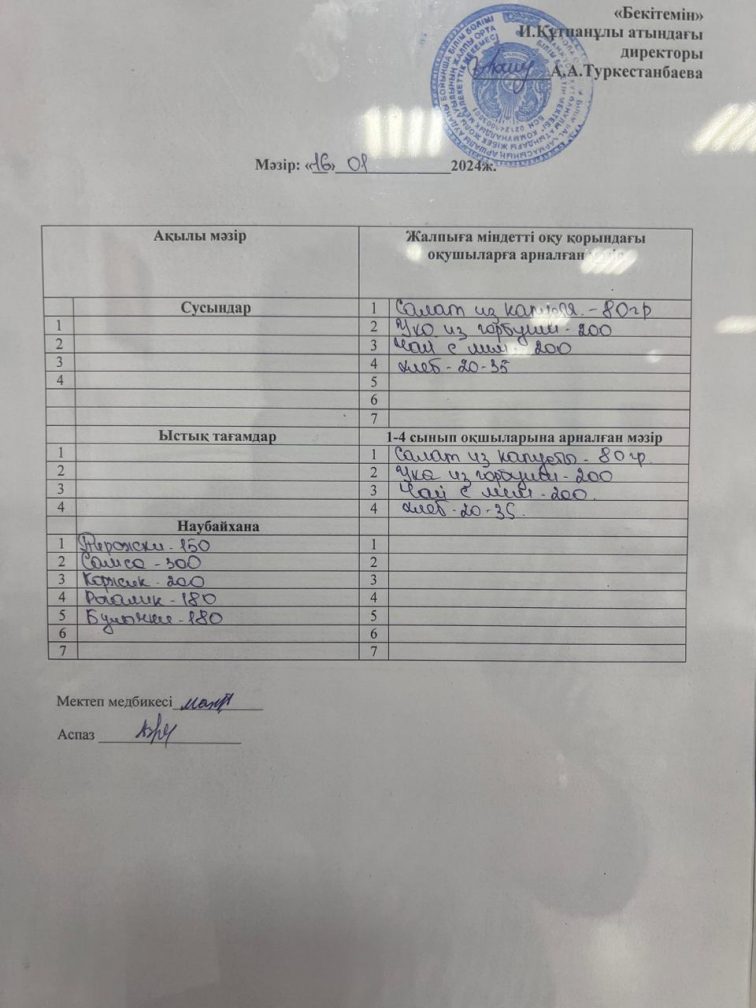 «Бекітемін»
И.Құтпанұлы атындағы
директоры
А.А.Туркестанбаева
Мәзір: «16» 01 2024ж.
Ақылы мәзір
Жалпыға міндетті оқу қорындағы
оқушыларға арналған
Сусындар
1 Салат из капусты - 80гр
1
2 Уха из горбуши - 200
2
3 Чай с лим - 200
3
4 хлеб - 20-35
4
5
6
7
Ыстық тағамдар
1-4 сынып оқшыларына арналған мәзір
1
1 Салат из капусты - 80гр.
2
2 Уха из горбуши - 200
3
3 Чай с лим - 200.
4
4 хлеб - 20-35.
Наубайхана
1 Пирожки - 150
1
2 Самса - 300
2
3 Коржик - 200
3
4 Рогалик - 180
4
5 Булочки - 180
5
6
6
7
7
Мектеп медбикесі
Аспаз